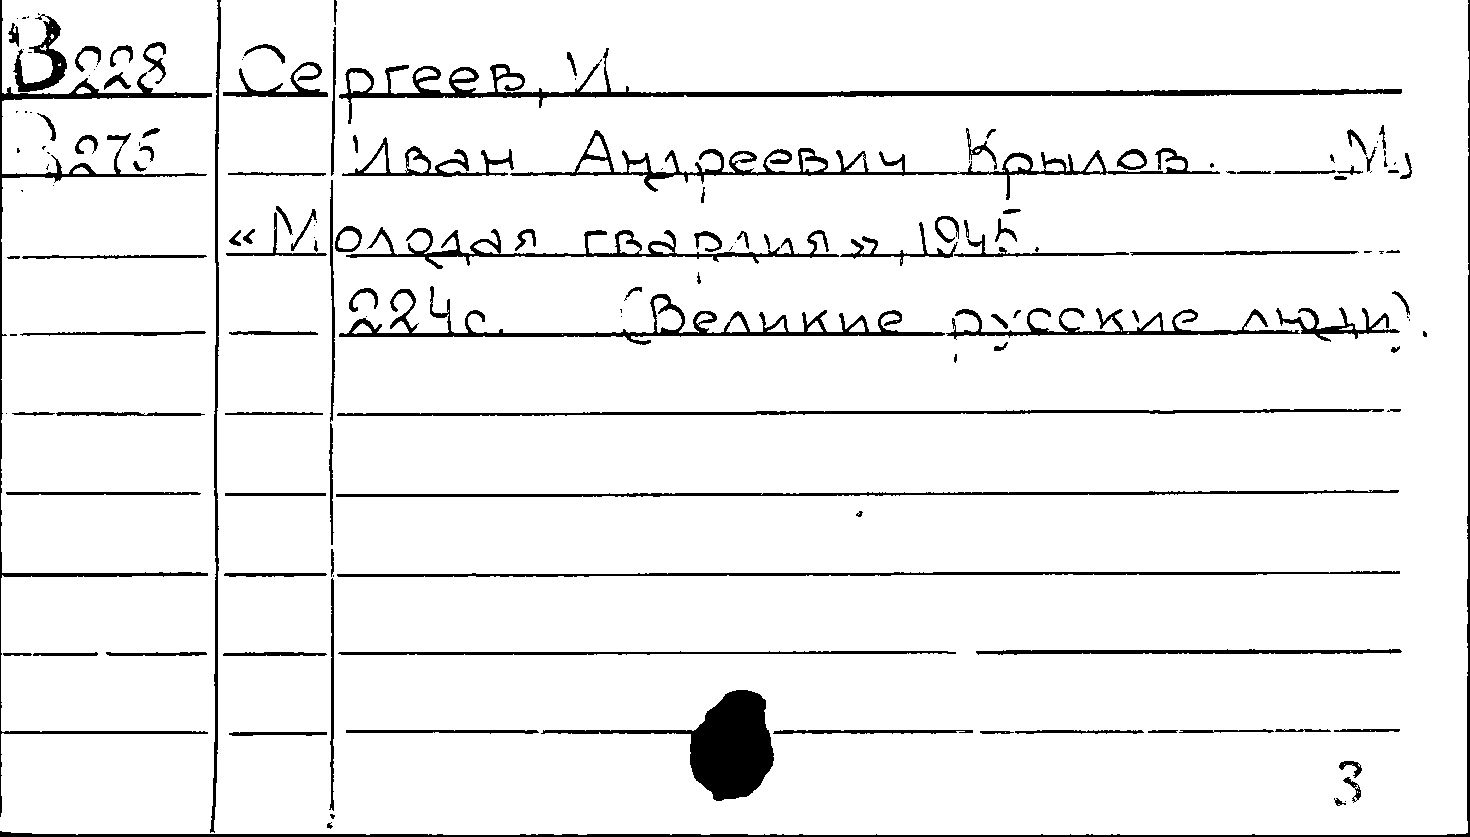 В228 Сергеев, И.
В275 Иван Андреевич Крылов. М.,
«Молодая гвардия», 1945.
224с. (Великие русские люди).
3